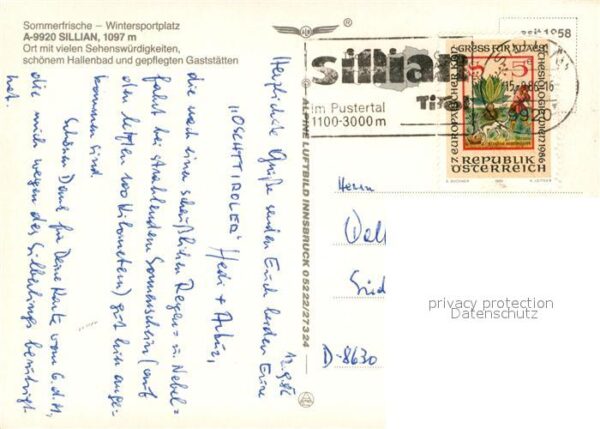 Sommerfrische – Wintersportplatz
A-9920 SILLIAN, 1097 m
Ort mit vielen Sehenswürdigkeiten,
schönem Hallenbad und gepflegten Gaststätten
seit 1958
sillian
Tirol
im Pustertal
1100-3000 m
9920
5 S
REPUBLIK
ÖSTERREICH
ALPINE LUFTBILD INNSBRUCK 05222/27324
12.9.86
Herzliche Grüße senden Euch beiden Eure
"OSCHTTIROLER" Hedi + Artur,
die nach einer scheißlichen Regen- u. Nebel=
fahrt bei strahlendem Sonnenschein (auf
den letzten 100 Kilometern) gut hier ange=
kommen sind.
Schönen Dank für Deine Karte vom 6.d.M.,
die mich wegen des Silberlings beruhigt
hat.
Herrn
D-8630
privacy protection
Datenschutz